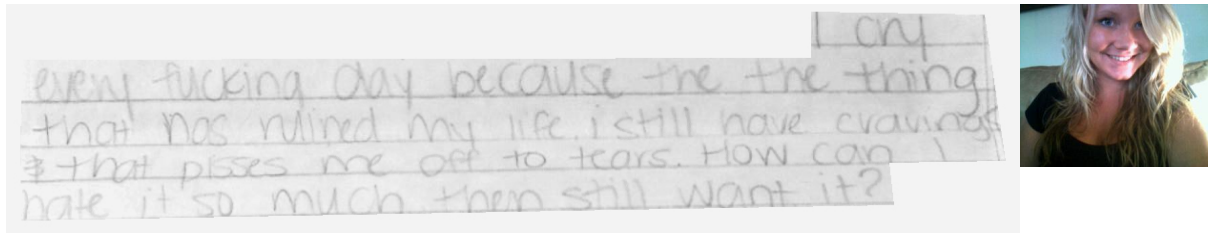 I cry
every fucking day because the the thing
that has ruined my life. i still have cravings
& that pisses me off to tears. How can I
hate it so much then still want it?